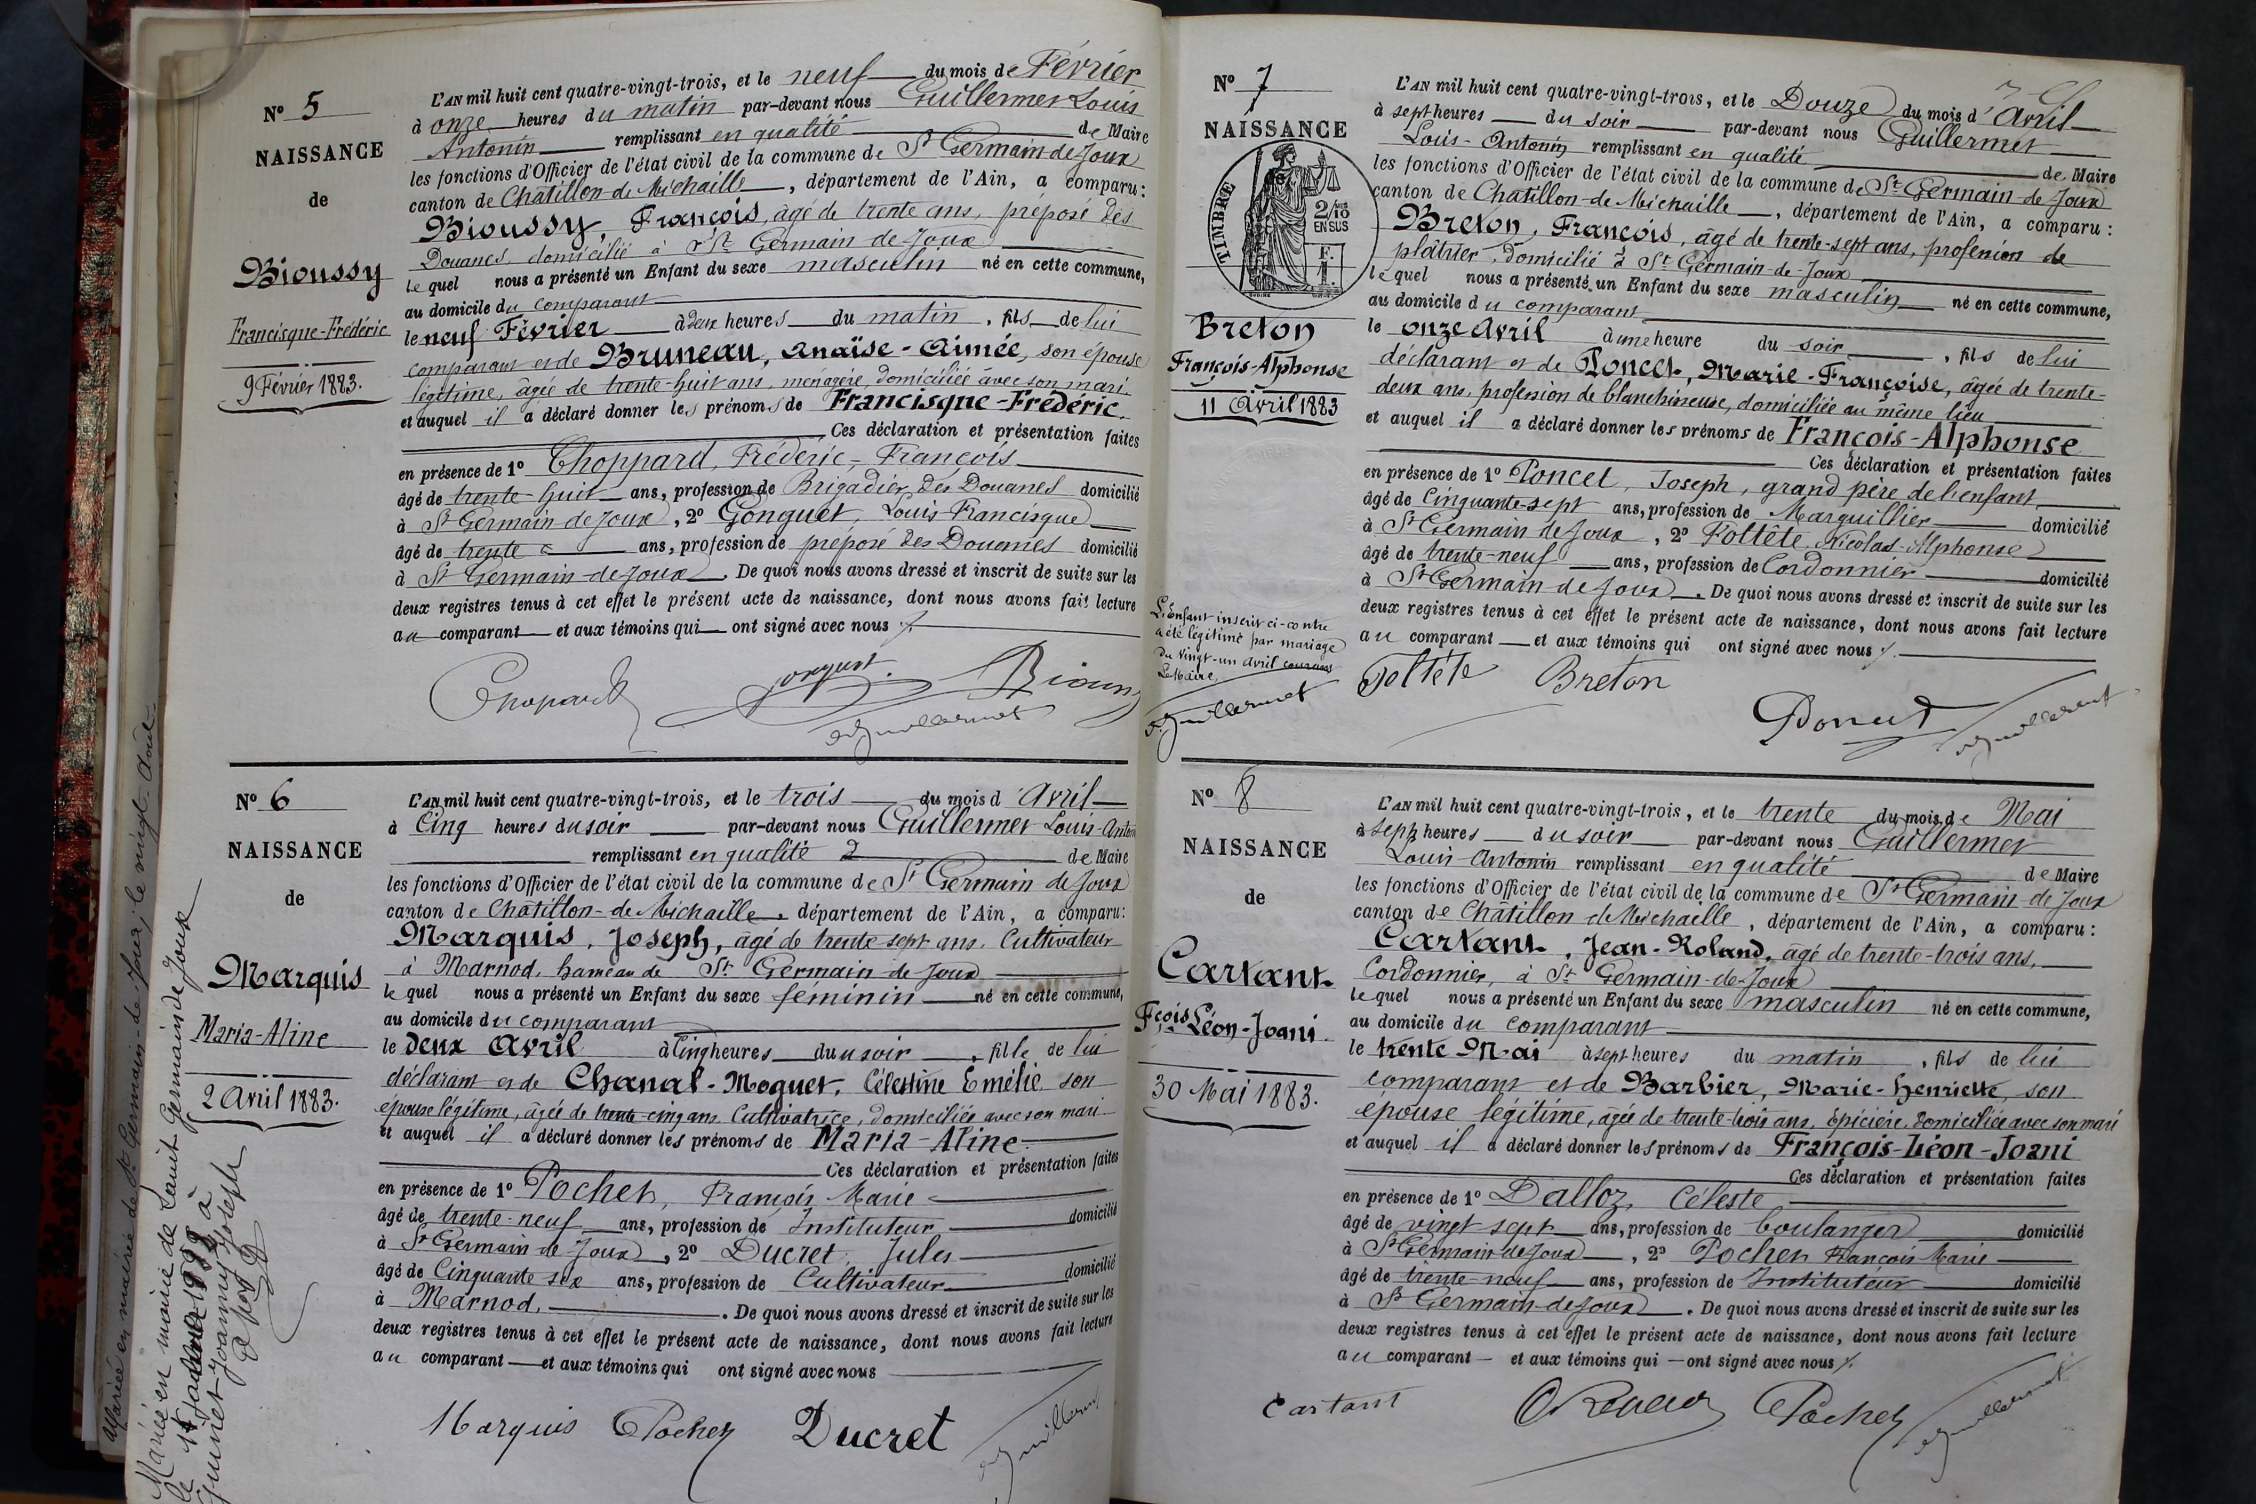 N° 5
NAISSANCE
de
Bioussy
Francisque-Frédéric
9 Février 1883.
L'AN mil huit cent quatre-vingt-trois, et le neuf du mois de Février
à onze heures du matin par-devant nous Guillermet Louis
Antonin remplissant en qualité de Maire
les fonctions d'Officier de l'état civil de la commune de St Germain de Joux
canton de Châtillon-de Michaille, département de l'Ain, a comparu:
Bioussy, François, âgé de trente ans, préposé des
Douanes domicilié à St Germain de Joux
lequel nous a présenté un Enfant du sexe masculin né en cette commune,
au domicile du comparant
le neuf Février à deux heures du matin, fils de lui
comparant et de Bruneau, Anaïse-Aimée, son épouse
légitime, âgée de trente-huit ans, ménagère, domiciliée avec son mari
et auquel il a déclaré donner les prénoms de Francisque-Frédéric.
Ces déclaration et présentation faites
en présence de 1° Choppard, Frédéric, François
âgé de trente-huit ans, profession de Brigadier des Douanes domicilié
à St Germain de Joux, 2° Gonguet, Louis Francisque
âgé de trente ans, profession de préposé des Douanes domicilié
à St Germain-de Joux. De quoi nous avons dressé et inscrit de suite sur les
deux registres tenus à cet effet le présent acte de naissance, dont nous avons fait lecture
au comparant et aux témoins qui ont signé avec nous
Gonguet
Guillermet
N° 6
NAISSANCE
de
Marquis
Maria-Aline
2 Avril 1883.
L'AN mil huit cent quatre-vingt-trois, et le trois du mois d'Avril
à cinq heures du soir par-devant nous Guillermet Louis-Antonin
remplissant en qualité de Maire
les fonctions d'Officier de l'état civil de la commune de St Germain de Joux
canton de Châtillon-de Michaille, département de l'Ain, a comparu:
Marquis, Joseph, âgé de trente sept ans, Cultivateur
à Marnod, hameau de St Germain de Joux
lequel nous a présenté un Enfant du sexe féminin né en cette commune,
au domicile du comparant
le deux Avril à cinq heures du soir, fille de lui
déclarant et de Chanal-Moguet, Célestine Emélie son
épouse légitime, âgée de trente cinq ans, Cultivatrice, domiciliée avec son mari
et auquel il a déclaré donner les prénoms de Maria-Aline
Ces déclaration et présentation faites
en présence de 1° Pochet, François Marie
âgé de trente-neuf ans, profession de Instituteur domicilié
à St Germain de Joux, 2° Ducret, Jules
âgé de Cinquante six ans, profession de Cultivateur domicilié
à Marnod. De quoi nous avons dressé et inscrit de suite sur les
deux registres tenus à cet effet le présent acte de naissance, dont nous avons fait lecture
au comparant et aux témoins qui ont signé avec nous
Marquis Pochet Ducret
Guillermet
Mariée en mairie de Saint Germain de Joux
Guinet Joanny Joseph
Mariée en mairie de St Germain-de-Joux, le vingt-août
N° 7
NAISSANCE
TIMBRE
2/10 EN SUS
F. 1.
Breton
François-Alphonse
11 Avril 1883
L'Enfant inscrit ci-contre
a été légitimé par mariage
du vingt-un Avril courant
Le Maire,
Guillermet
L'AN mil huit cent quatre-vingt-trois, et le Douze du mois d'Avril
à sept heures du soir par-devant nous Guillermet
Louis-Antonin remplissant en qualité de Maire
les fonctions d'Officier de l'état civil de la commune de St Germain-de Joux
canton de Châtillon-de Michaille, département de l'Ain, a comparu:
Breton, François, âgé de trente-sept ans, profession de
plâtrier, domicilié à St Germain-de-Joux
lequel nous a présenté un Enfant du sexe masculin né en cette commune,
au domicile du comparant
le onze Avril à une heure du soir, fils de lui
déclarant et de Poncet, Marie-Françoise, âgée de trente-
deux ans, profession de blanchisseuse, domiciliée au même lieu
et auquel il a déclaré donner les prénoms de François-Alphonse
Ces déclaration et présentation faites
en présence de 1° Poncet, Joseph, grand père de l'enfant
âgé de Cinquante-sept ans, profession de Marguillier domicilié
à St Germain de Joux, 2° Foltête Nicolas-Alphonse
âgé de trente-neuf ans, profession de Cordonnier domicilié
à St Germain de Joux. De quoi nous avons dressé et inscrit de suite sur les
deux registres tenus à cet effet le présent acte de naissance, dont nous avons fait lecture
au comparant et aux témoins qui ont signé avec nous
Foltête Breton
Guillermet
N° 8
NAISSANCE
de
Cartant
Fçois Léon-Joani
30 Mai 1883.
L'AN mil huit cent quatre-vingt-trois, et le trente du mois de Mai
à sept heures du soir par-devant nous Guillermet
Louis-Antonin remplissant en qualité de Maire
les fonctions d'Officier de l'état civil de la commune de St Germain-de Joux
canton de Châtillon de Michaille, département de l'Ain, a comparu:
Cartant, Jean-Roland, âgé de trente-trois ans,
Cordonnier, à St Germain-de-Joux
lequel nous a présenté un Enfant du sexe masculin né en cette commune,
au domicile du comparant
le trente Mai à sept heures du matin, fils de lui
comparant et de Barbier, Marie-Henriette, son
épouse légitime, âgée de trente-trois ans, Epicière, domiciliée avec son mari
et auquel il a déclaré donner les prénoms de François-Léon-Joani
Ces déclaration et présentation faites
en présence de 1° Dalloz, Céleste
âgé de vingt sept ans, profession de boulanger domicilié
à St Germain de Joux, 2° Pochet François Marie
âgé de trente-neuf ans, profession de Instituteur domicilié
à St Germain-de Joux. De quoi nous avons dressé et inscrit de suite sur les
deux registres tenus à cet effet le présent acte de naissance, dont nous avons fait lecture
au comparant et aux témoins qui ont signé avec nous
Cartant Pochet
Guillermet